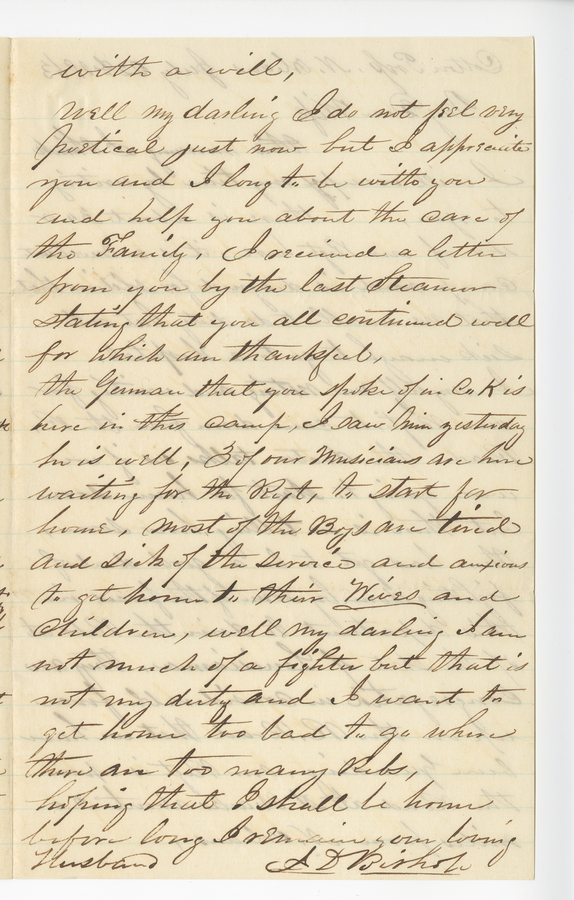 with a will,
Well my darling I do not feel very
Poetical just now but I appreciate
you and I long to be with you
and help you about the care of
the Family, I recieved a letter
from you by the last Steamer
stating that you all continued well
for which am thankful,
the German that you spoke of in Co K is
here in this camp, I saw him yesterday
he is well, 3 of our Musicians are here
waiting for the Regt, to start for
home, most of the Boys are tired
and sick of the service and anxious
to get home to their Wives and
Children, well my darling I am
not much of a fighter but that is
not my duty and I want to
get home too bad to go where
there are too many Rebs,
hoping that I shall be home
before long I remain your loving
Husband